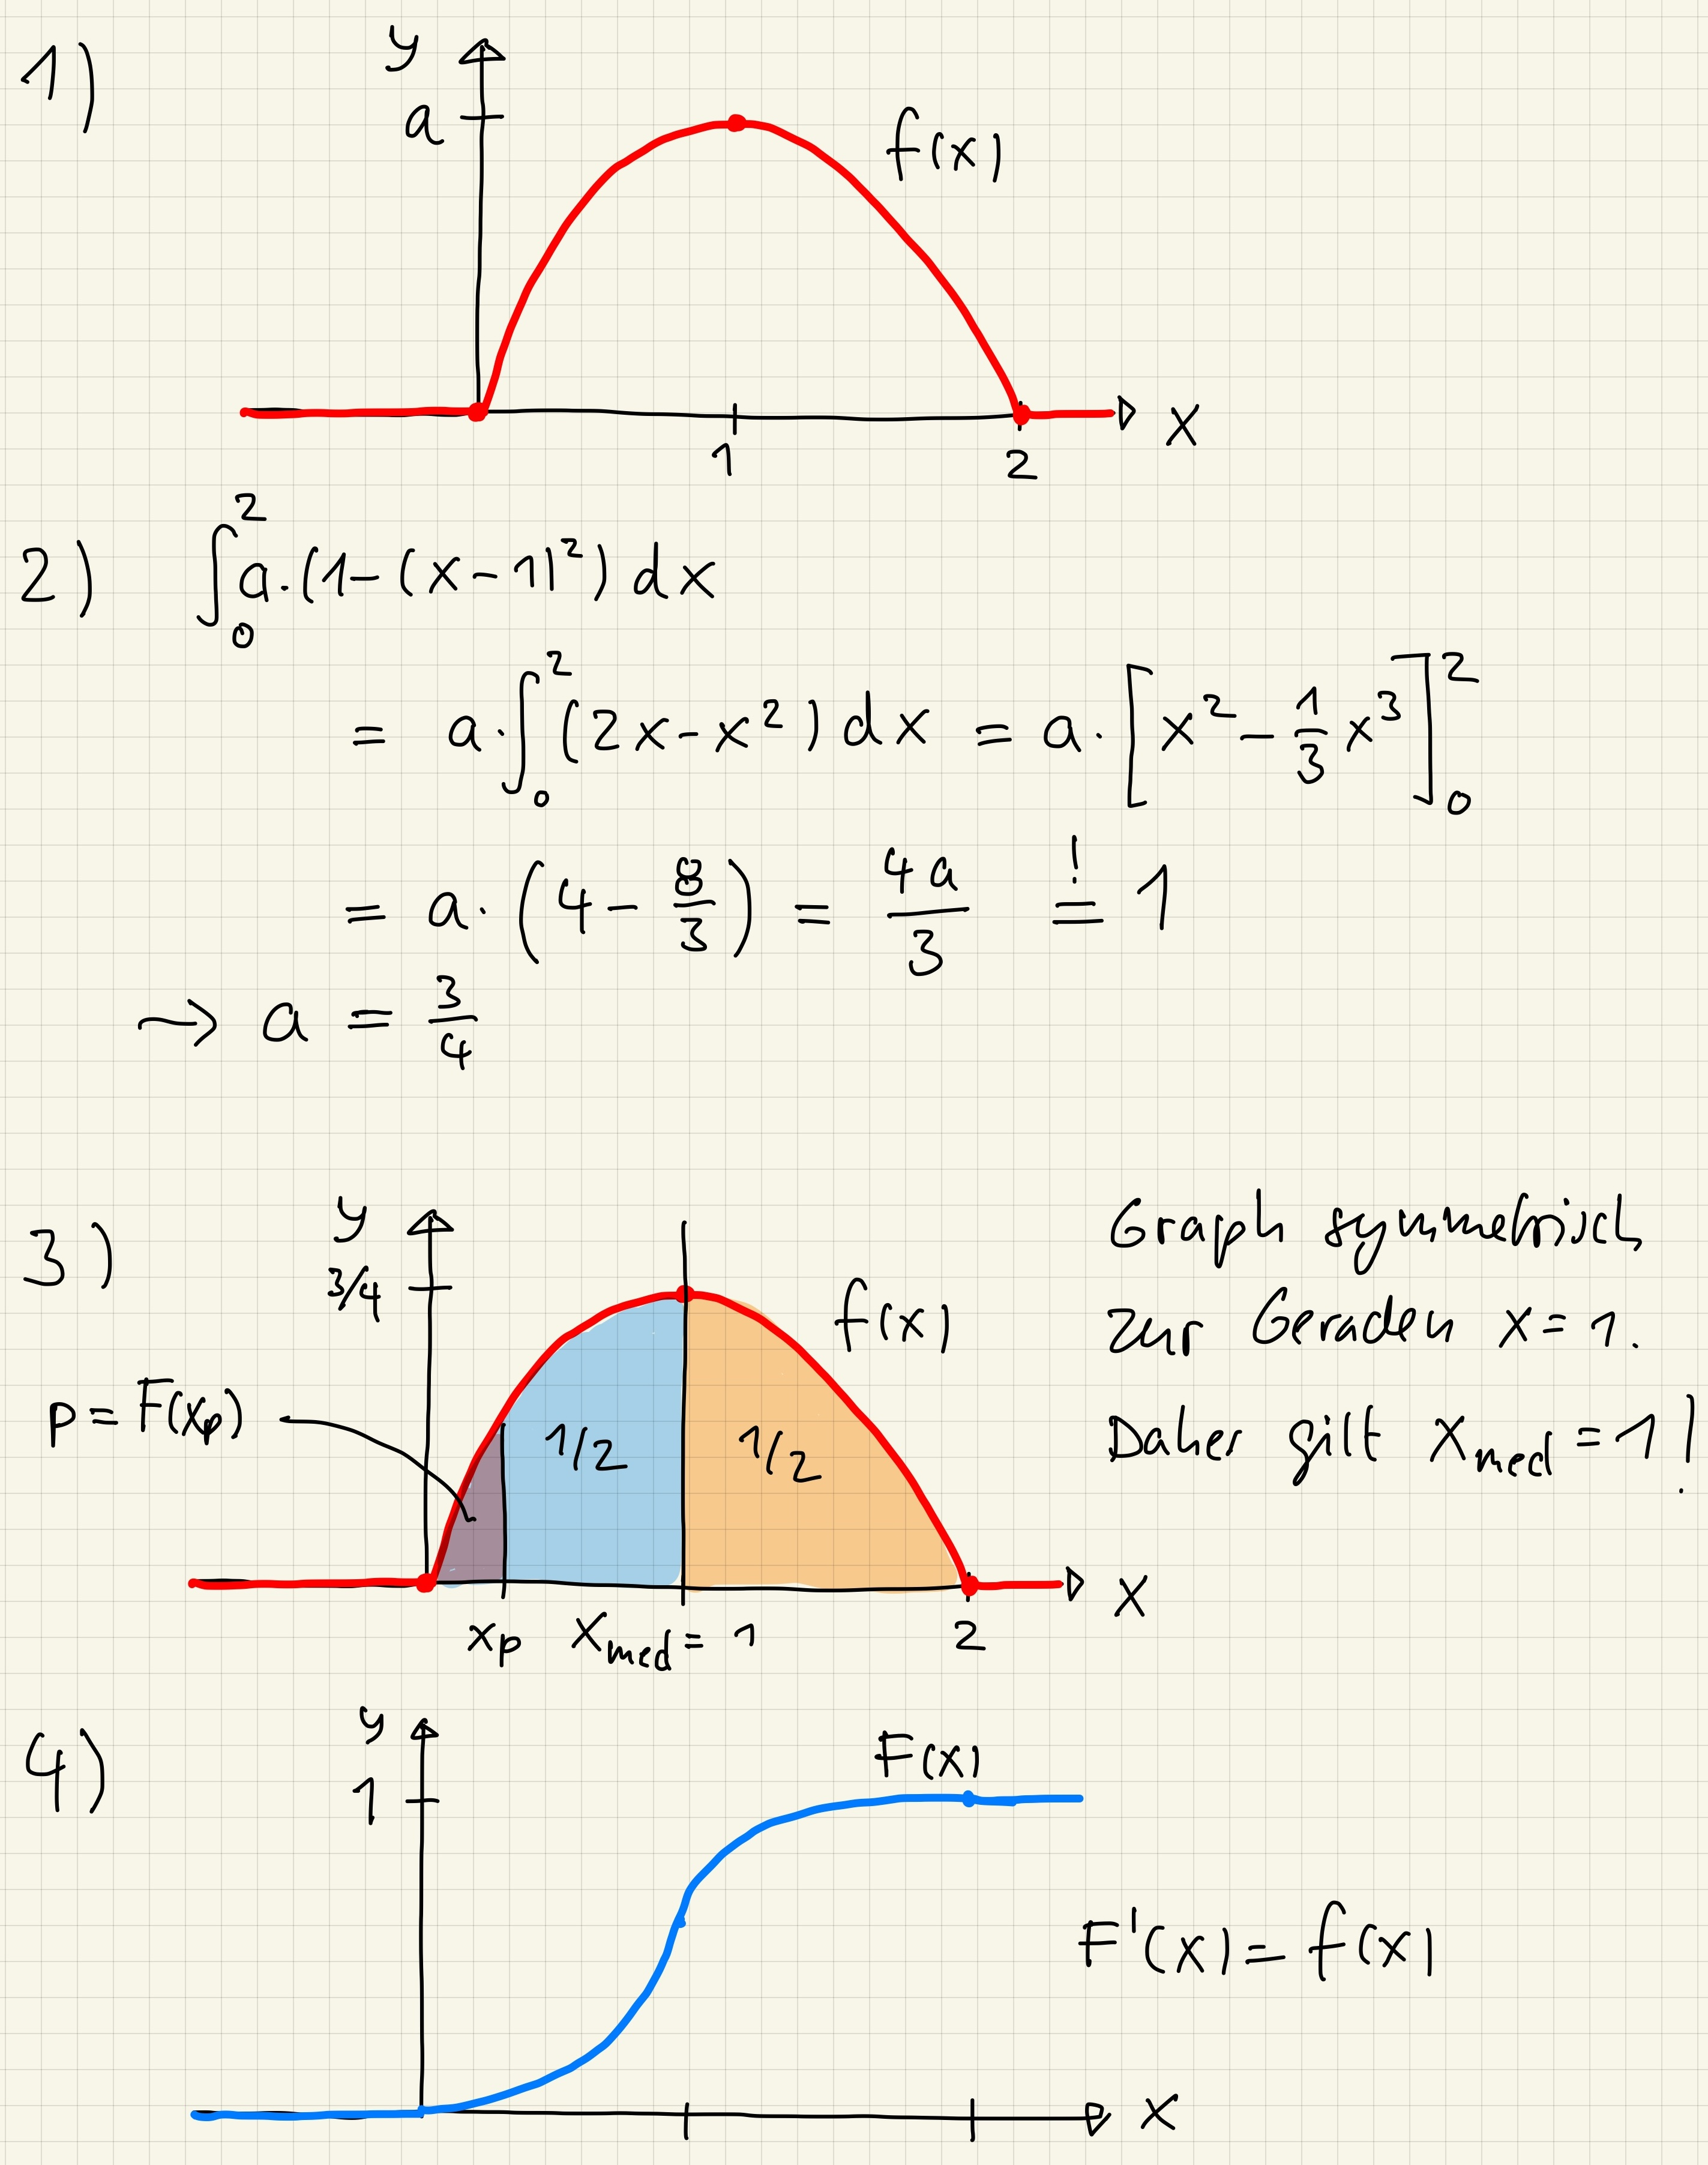 1)
y
a
f(x)
1
2
x
2) ∫₀² a·(1-(x-1)²) dx
= a·∫₀² (2x-x²) dx = a·[x² - 1/3 x³]₀²
= a·(4 - 8/3) = 4a/3 =! 1
⇝ a = 3/4
3)
y
3/4
f(x)
p = F(xₚ)
1/2
1/2
xₚ
x_med = 1
2
x
Graph symmetrisch
zur Geraden x = 1.
Daher gilt x_med = 1!
4)
y
1
F(x)
F'(x) = f(x)
x